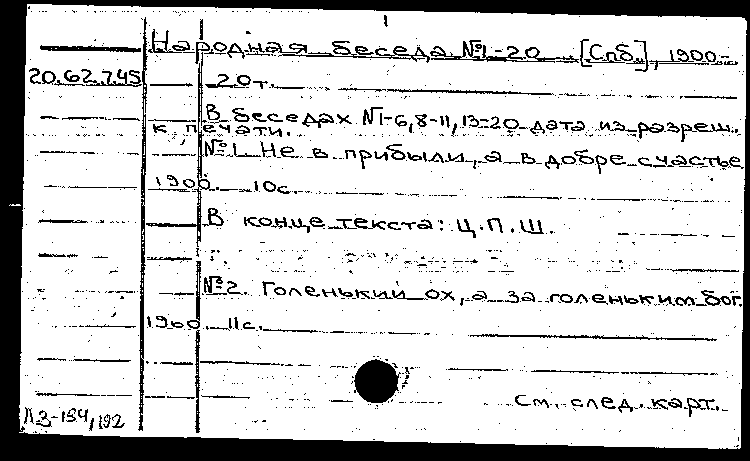 1
Народная беседа №1-20 [Спб.], 1900-
20.62.7.45 20т.
В беседах №1-6, 8-11, 13-20 дата из разреш.
к печати.
№1. Не в прибыли, а в добре счастье
1900. 10с.
В конце текста: Ц.П.Ш.
№2. Голенький ох, а за голеньким бог.
1900. 11с.
См. след. карт.
ЛЗ-194/192